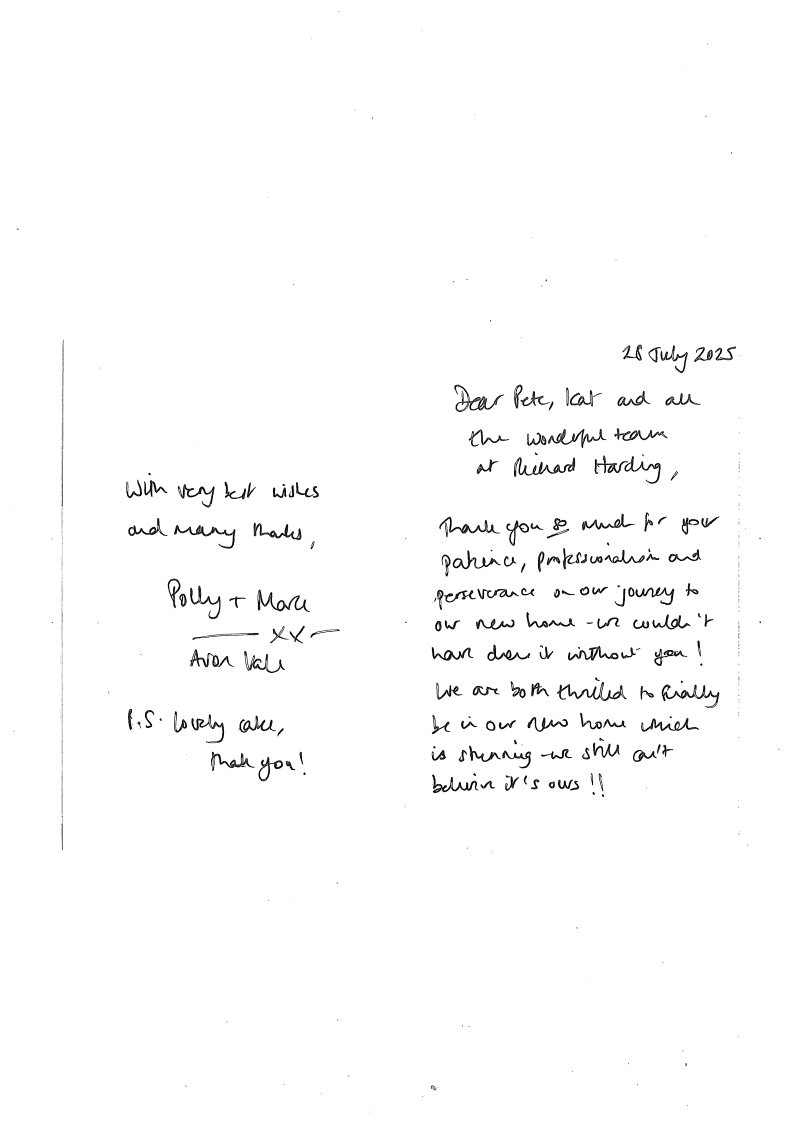 28 July 2025
Dear Pete, Kat and all
the wonderful team
at Richard Harding,
Thank you so much for your
patience, professionalism and
perseverance on our journey to
our new home - we couldn't
have done it without you!
We are both thrilled to finally
be in our new home which
is stunning - we still can't
believe it's ours!!
With very best wishes
and many thanks,
Polly + Mark
xx
Avon Vale
P.S. Lovely cake,
thank you!